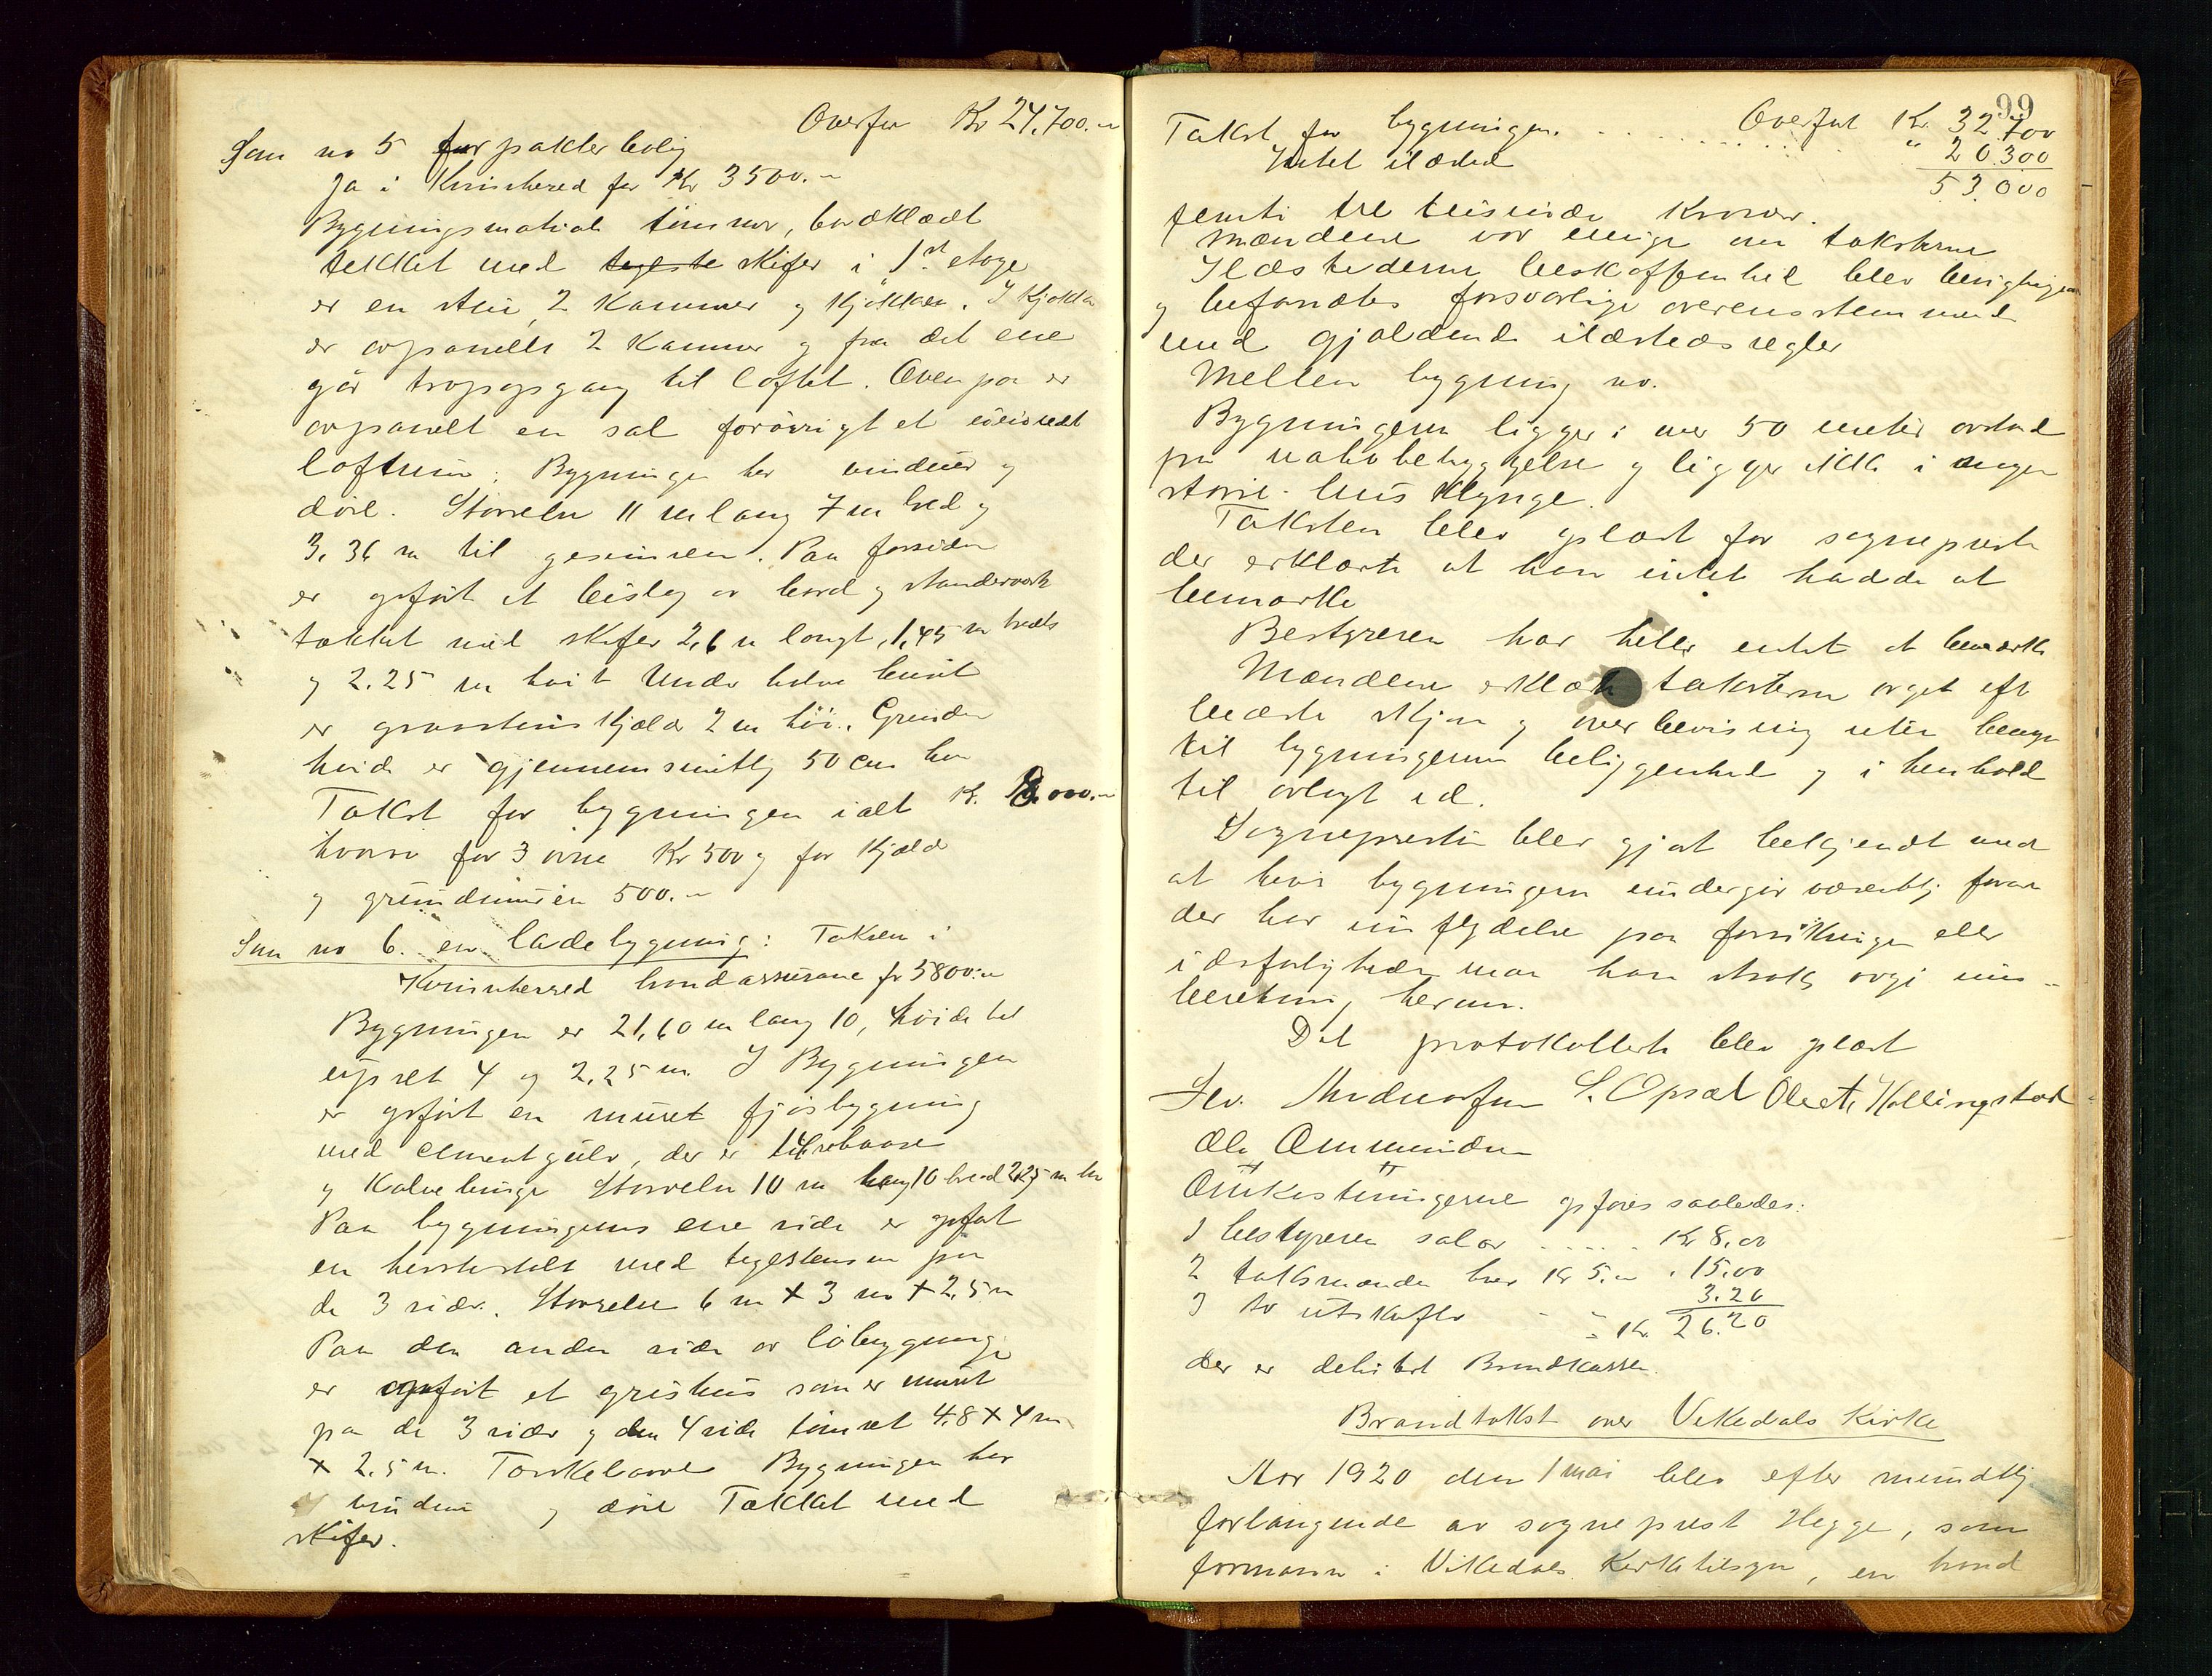 Overfør Kr 24,700.-
Som no 5 forpakter bolig
Ja i Kvinnherred for Kr 3500.-
Bygningsmateriale tømmer, bordklædt
tækket med tegelste skifer i 1st etage
er en stue, 2 Kammer og Kjøkken. I Kjøkken
er avpanelt 2 Kammer og fra det ene
går trapopgang til loftet. Ovenpaa er
avpanelt en sal forøvrigt et uinredt
loftrum. Bygningen har vinduer og
døre. Størrelse 11 m lang 7 m bred og
3,36 m til gesimsen. Paa forsiden
er opført et bislag av bord og standerværk
tækket med skifer 2,6 m langt, 1,45 m bredt
og 2.25 m høit Under halve huset
er graastens kjælder 2 m høi. Grunden
høide er gjennemsnitlig 50 cm høi
Takst for bygningen ialt Kr. 8.000.-
hvorav for 3 ovne Kr 500 og for Kjælder
og grundmuren 500.-
Som no 6. en ladebygning: Taksen i
Kvinnherred brandassurance for 5800.-
Bygningen er 21,60 m lang 10, høide til
4 og 2.25 m. I Bygningen
er opført en muret fjøsbygning
med cementgulv, der er 14
og Kalvebinge Størrelse 10 m lang 10 bred 2.25 m høi
Paa bygningens ene side er opført
en hestestald med tegelstensmur paa
de 3 sider. Størrelse 6 m x 3 m x 2.5 m
Paa den anden side av løbygningen
er opført et grishus som er muret
paa de 3 sider og den 4 side tømret 4.8 x 4 m
x 2.5 m. Bygningen har
vinduer og døre Tækket med
skifer.
99
Overført Kr. 32.700
Takst for bygningen. . . . . . . . . . " 20.300
Intet ildsted
53.000
femti tre tusinde Kroner.
Mændene var enige om taksterne
Ildstedernes beskaffenhed blev besigtiget
og befandtes forsvarlige overensstemmende
med gjældende ildstedsregler
Mellem bygning no.
Bygningerne ligger i over 50 meter avstand
fra nabobebyggelse og ligger ikke i nogen
større husklynge.
Taksten blev oplæst for sogneprest
der erklærte at han intet hadde at
bemærke
Bestyreren har heller intet at bemærke
Mændene erklærte taksterne avget efter
bedste skjøn og overbevisning uten hensyn
til bygningernes beliggenhed og i henhold
til avlagt ed.
Sognepresten blev gjort bekjendt med
at hvis bygningerne undergår væsentlig foran
der har inflydelse paa forsikringen eller
ildsfarligheden maa han straks avgi ind-
beretning herom.
Det protokollerte blev oplæst
S. Opsal Ole T. Hallingstad
Ole Ommundsen
Omkostningerne opføres saaledes:
1 bestyreren salar . . . . . Kr 8.00
2 taksmænder hver Kr 5.- " 15.00
3 to utskrifter - - 3.20
Kr. 26.20
der er debitert Brandkassen.
Brandtakst over Vikedals Kirke
Aar 1920 den 1 mai blev efter mundtlig
forlangende av sogneprest Hegge, som
formann i Vikedals Kirketilsyn, en brand